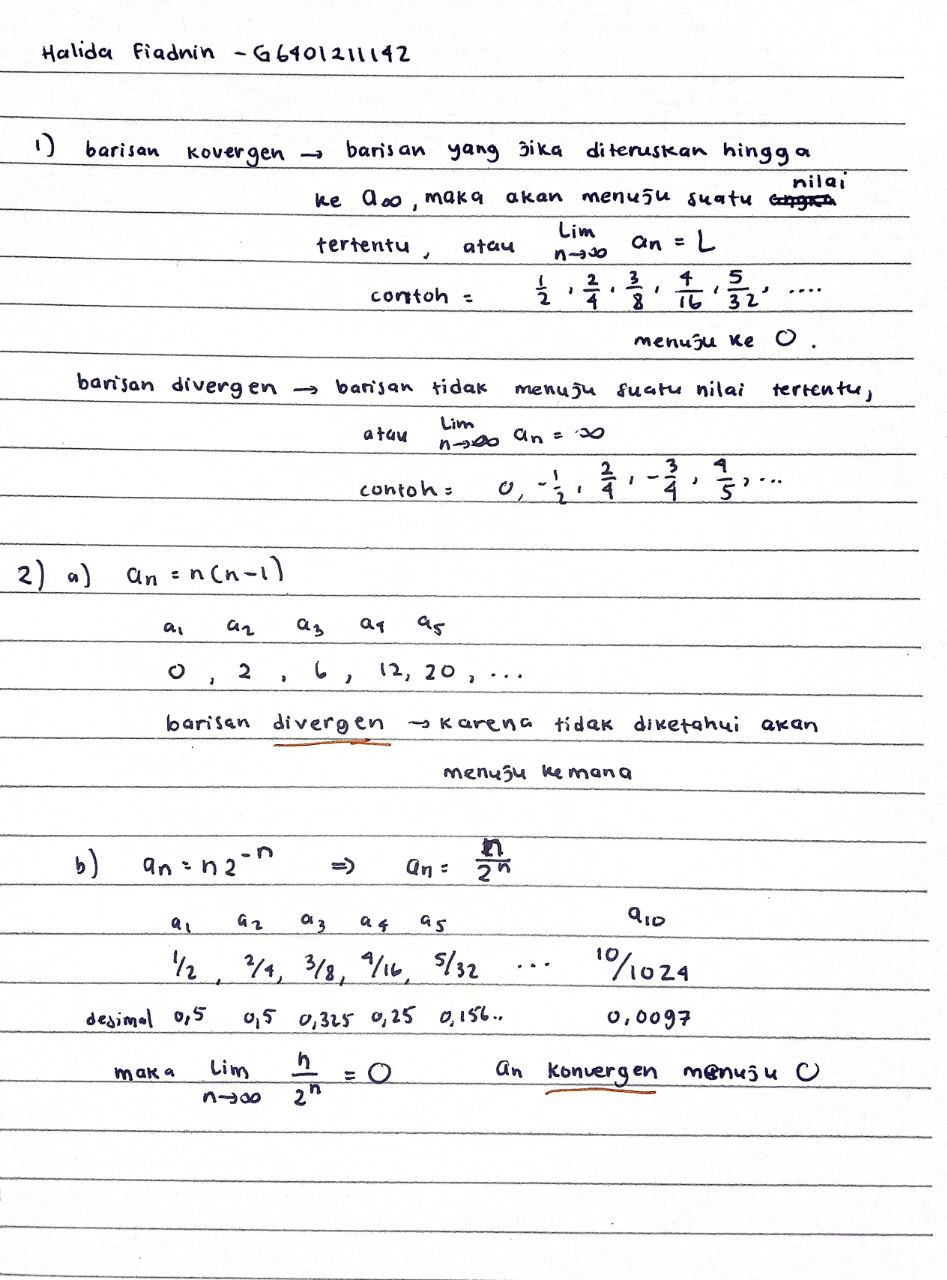 Halida Fiadnin - G6401211142
1) barisan kovergen → barisan yang jika diteruskan hingga
ke a∞, maka akan menuju suatu nilai
tertentu, atau lim n→∞ an = L
contoh = 1/2, 2/4, 3/8, 4/16, 5/32, ....
menuju ke 0.
barisan divergen → barisan tidak menuju suatu nilai tertentu,
atau lim n→∞ an = ∞
contoh = 0, -1/2, 2/4, -3/4, 4/5, ...
2) a) an = n(n-1)
a1 a2 a3 a4 a5
0, 2, 6, 12, 20, ...
barisan divergen → karena tidak diketahui akan
menuju kemana
b) an = n2^-n ⇒ an = n/2^n
a1 a2 a3 a4 a5 a10
1/2, 2/4, 3/8, 4/16, 5/32 ... 10/1024
desimal 0,5 0,5 0,325 0,25 0,156.. 0,0097
maka Lim n→∞ n/2^n = 0 an konvergen menuju 0